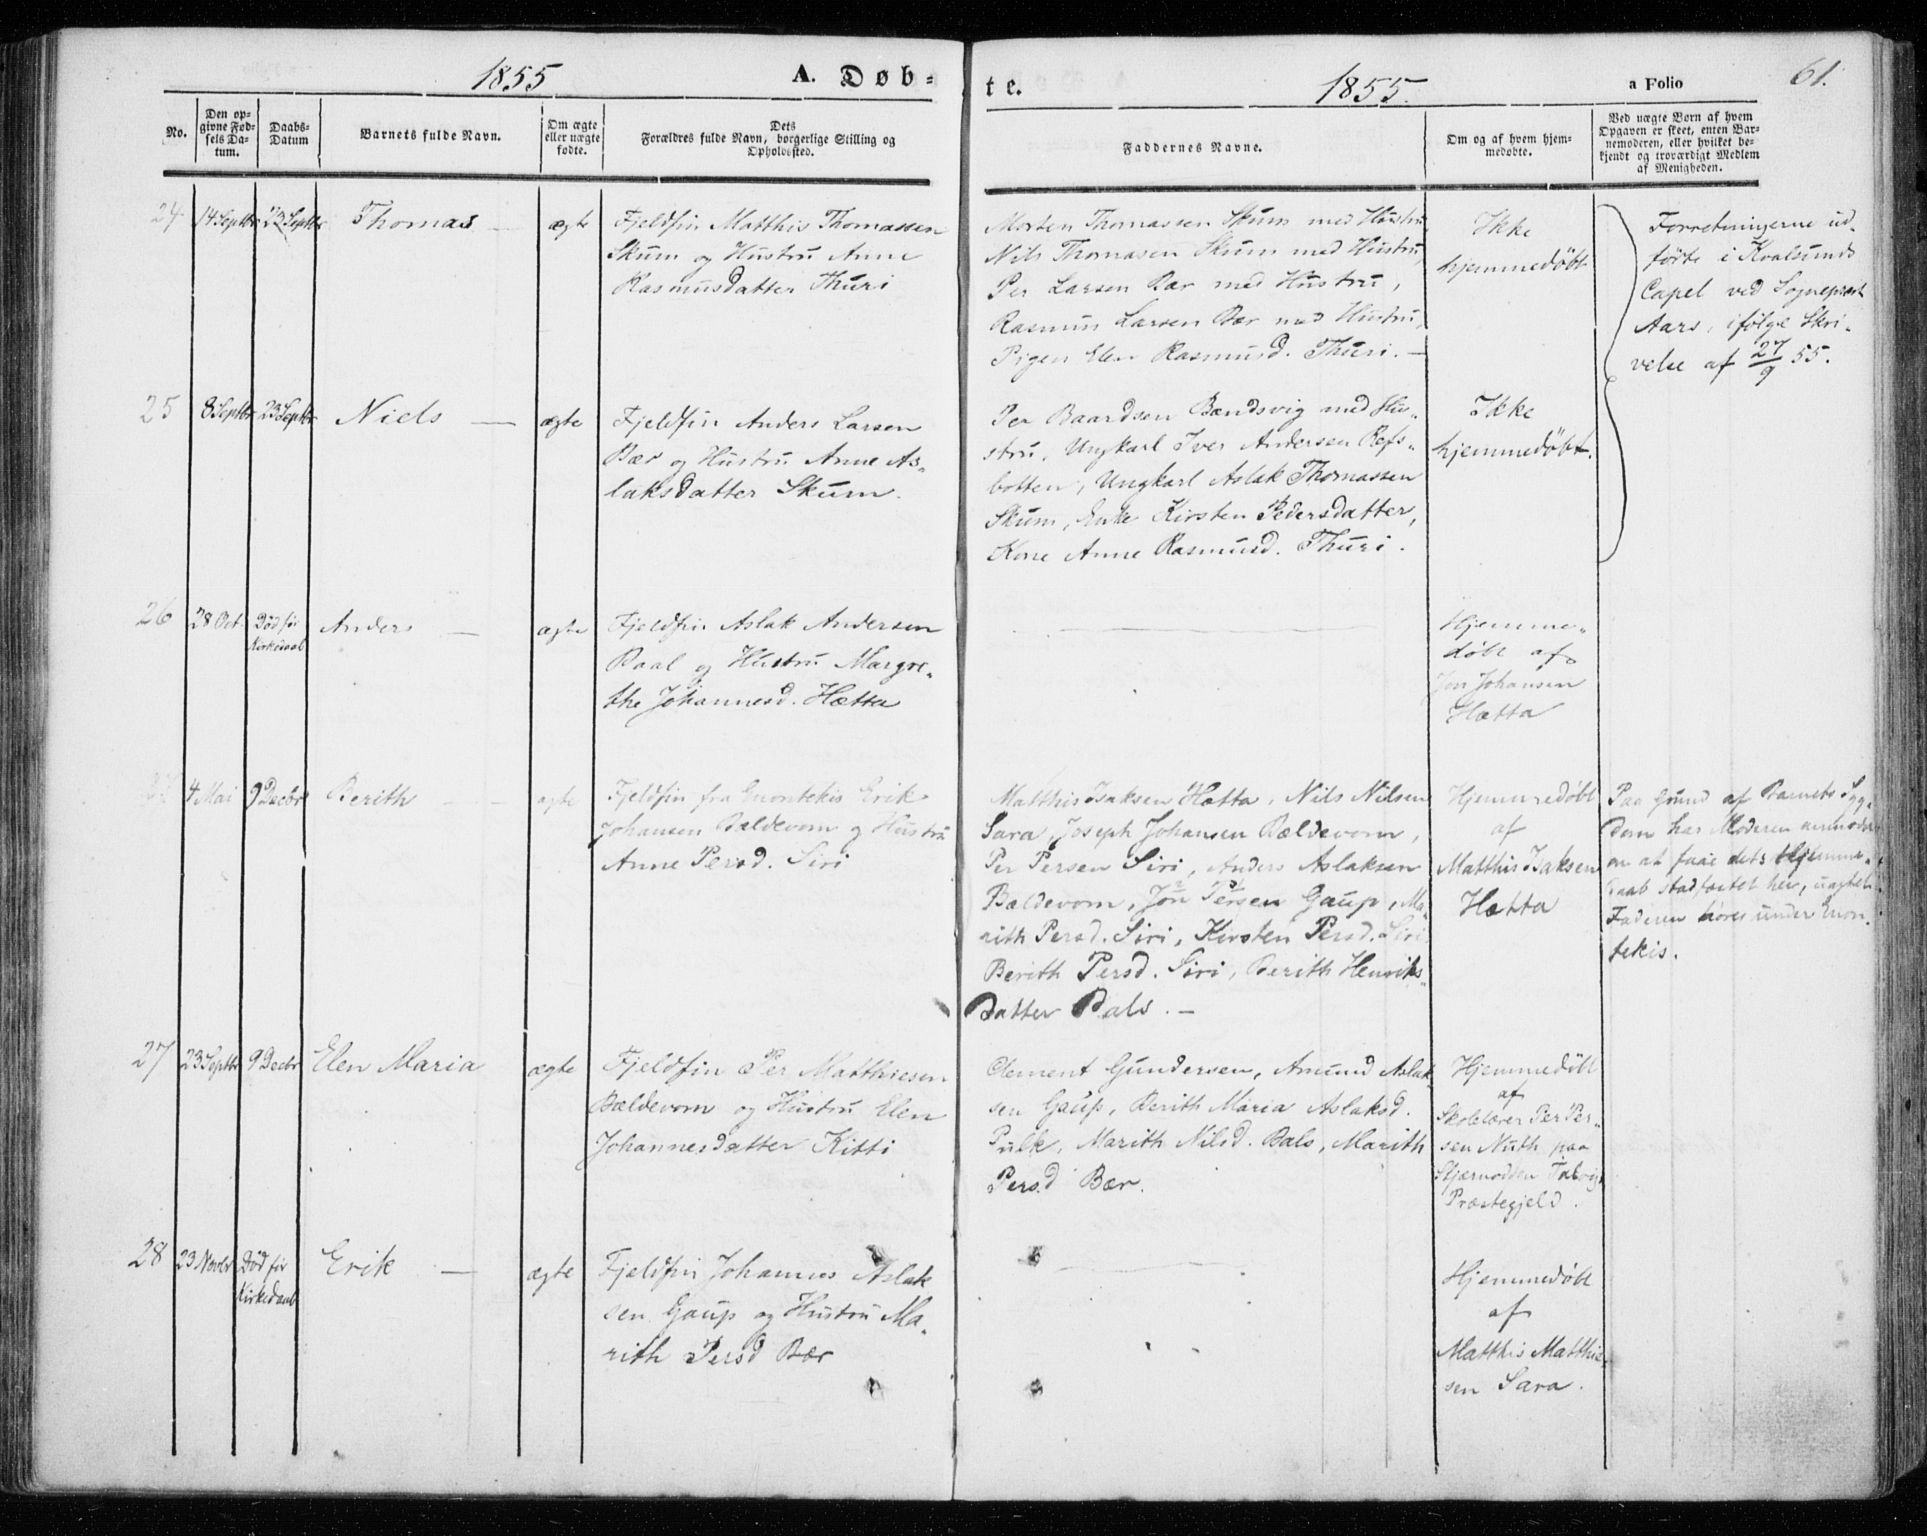 1855
A. Døb-
te.
1855.
a Folio
61.
No.
Den op-
givne Fød-
sels Da-
tum.
Daabs-
Datum
Barnets fulde Navn.
Om ægte
eller uægte
fødte.
Dets
Forældres fulde Navn, borgerlige Stilling og
Opholdssted.
Faddernes Navne.
Om og af hvem hjem-
medøbte.
Ved uægte Børn af hvem
Opgaven er skeet, enten Bar-
nemoderen, eller hvilket be-
kjendt og troværdigt Medlem
af Menigheden.
24 14 Septbr 23 Septbr Thomas — ægte
Fjeldfin Matthis Thomassen
Skum og Hustru Anne
Rasmusdatter Thuri
Morten Thomassen Skum med Hustru
Nils Thomasen Skum med Hustru,
Per Larsen Bær med Hustru,
Rasmus Larsen Bær med Hustru,
Pigen Elen Rasmusd. Thuri. —
Ikke
hjemmedøbt
Forretningerne ud-
førte i Kvalsunds
Capel ved Sognepræst
Aars, ifølge Skri-
velse af 27/9 55.
25 8 Septbr 23 Septbr Niels — ægte
Fjeldfin Anders Larsen
Bær og Hustru Anne As-
laksdatter Skum.
Per Baardsen Bændsvig med Hu-
stru, Ungkarl Iver Andersen Refs-
botten, Ungkarl Aslak Thomassen
Skum, Enke Kirsten Pedersdatter,
Kone Anne Rasmusd. Thuri.
Ikke
hjemmedøbt.
26 28 Oct. Død før
Kirkedaab
Anders — ægte
Fjeldfin Aslak Andersen
Baal og Hustru Margre-
the Johannesd. Hætta
Hjemme-
døbt af
Jon Johansen
Hætta
4 Mai 9 Decbr Berith — ægte
Fjeldfin fra Enontekis Erik
Johansen Bældevom og Hustru
Anne Persd. Siri
Matthis Isaksen Hætta, Nils Nilsen
Sara, Joseph Johansen Bældevom,
Per Persen Siri, Anders Aslaksen
Bældevom, Jon Persen Gaup, Ma-
rith Persd. Siri, Kirsten Persd. Siri
Berith Persd. Siri, Berith Henriks-
Datter Bals. —
Hjemmedøbt
af
Matthis Isaksen
Hætta
Paa Grund af Barnets Syg-
dom har Moderen
om at faae dets Hjemme-
daab stadfæstet her, uagtet
Faderen hører under Enon-
tekis.
27 23 Septbr 9 Decbr Elen Maria ægte
Fjeldfin Per Matthiesen
Bældevom og Hustru Elen
Johannesdatter Kitti
Clement Gundersen, Amund Aslak
sen Gaup, Berith Maria Aslaksd.
Pulk, Marith Nilsd. Bals, Marith
Persd Bær.
Hjemmedøbt
af
Skolelærer Per Per-
sen Nuth paa
Stjernodden Talvigs
Præstegjeld.
28 23 Novbr Død før
Kirkedaab
Erik — ægte
Fjeldfin Johannes Aslak
sen Gaup og Hustru Ma-
rith Persd Bær
Hjemmedøbt
af
Matthis Matthie
sen Sara.